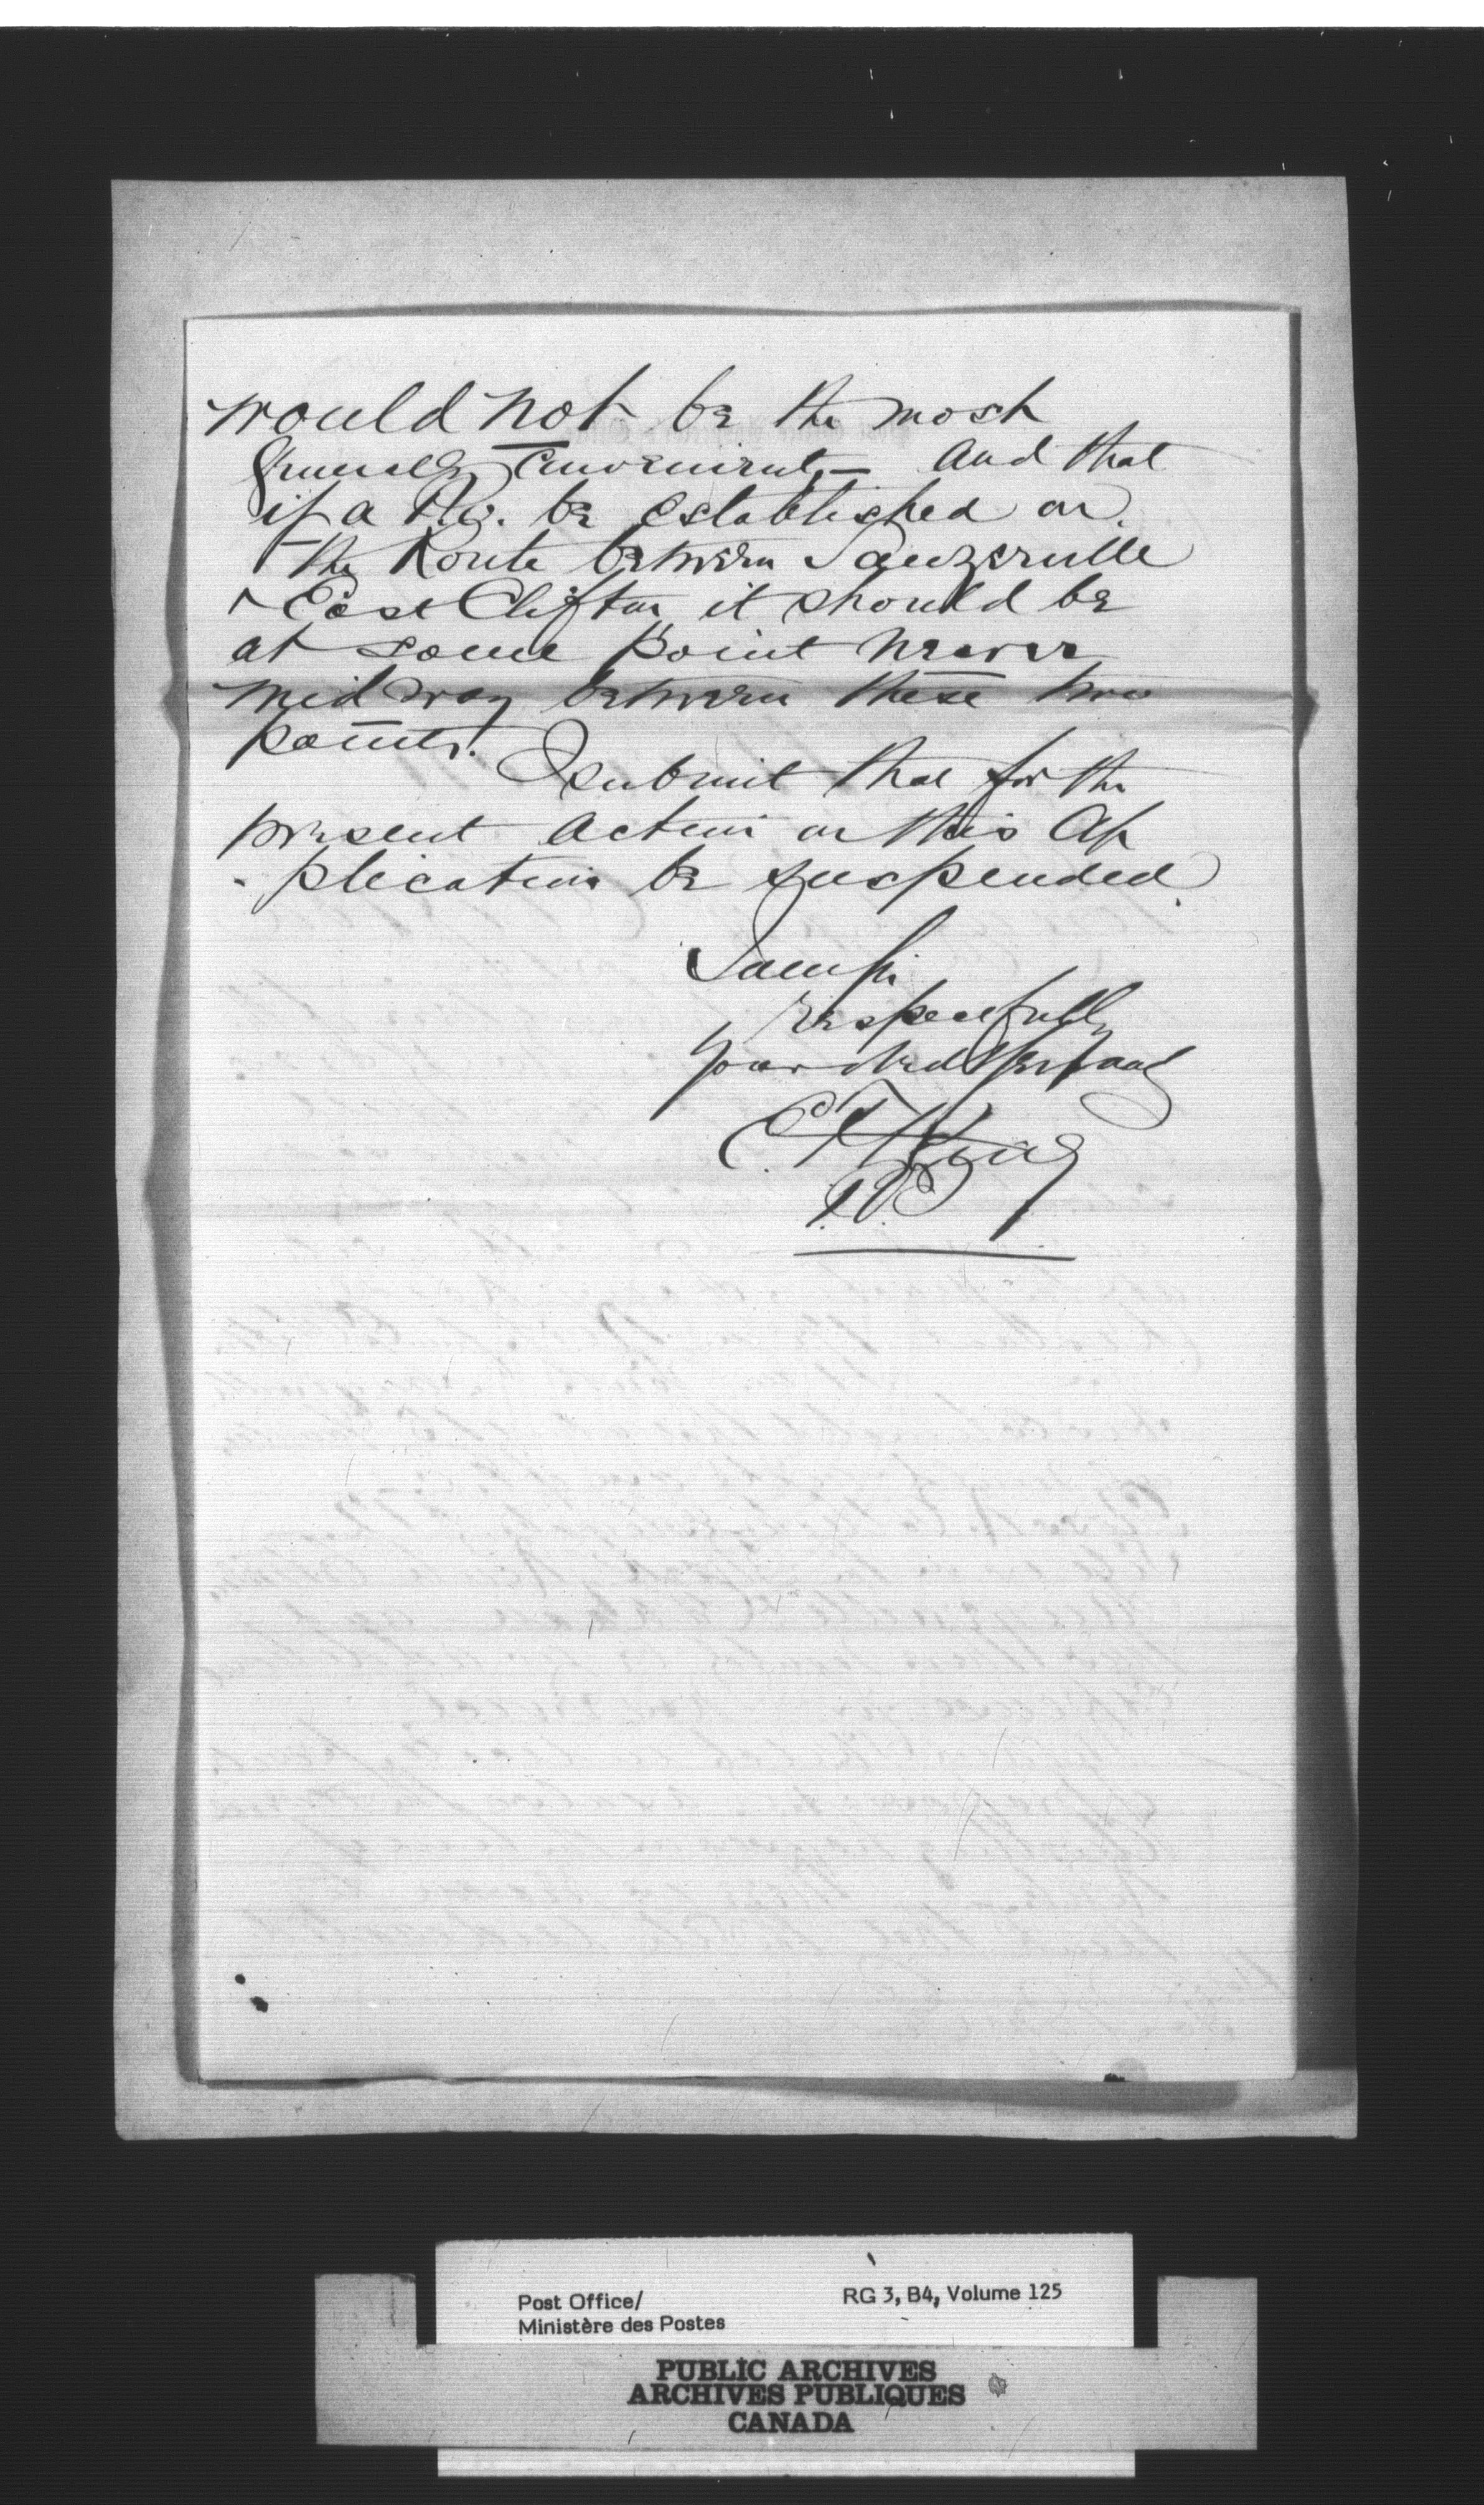 would not be the most
generally convenient, — and that
if a P.O. be established on
the Route between Sawyerville
& East Clifton it should be
at some point nearer
mid way between these two
points.
I submit that for the
present action on this Ap
- plication be suspended.
I am Sir
respectfully
your obed Servant
E. F. King
P.O.I
Post Office/
Ministère des Postes
RG 3, B4, Volume 125
PUBLIC ARCHIVES
ARCHIVES PUBLIQUES
CANADA